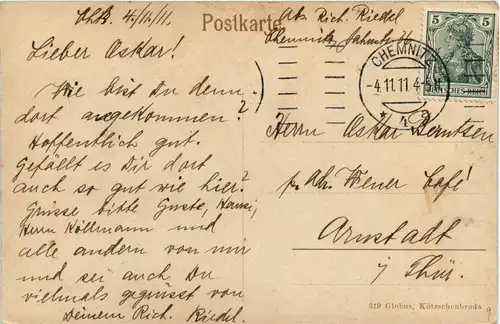 Chtz. 4./11./11.
Postkarte
Abs. Rich. Riedel
Chemnitz,
Lieber Oskar!
Wie bist Du denn
dort angekommen?
Hoffentlich gut.
Gefällt es Dir dort
auch so gut wie hier?
Grüsse bitte Guste, Hansi,
Herrn Köllmann und
alle andern von mir
und sei auch Du
vielmals gegrüsst von
Deinem Rich. Riedel.
5 5
DEUTSCHES REICH
CHEMNITZ
-4.11.11.4-
* 4
Herrn Oskar Berntsen
p. Adr. Wener Café
Arnstadt
i/Thür.
319 Globus, Kötzschenbroda